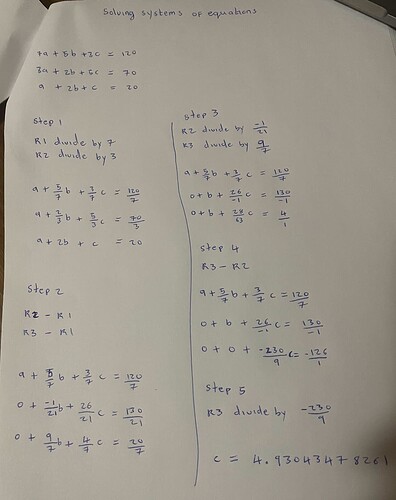 Solving systems of equations
7a + 5b + 3c = 120
3a + 2b + 5c = 70
a + 2b + c = 20
Step 1
R1 divide by 7
R2 divide by 3
a + 5/7 b + 3/7 c = 120/7
a + 2/3 b + 5/3 c = 70/3
a + 2b + c = 20
Step 2
R2 - R1
R3 - R1
a + 5/7 b + 3/7 c = 120/7
0 + -1/21 b + 26/21 c = 130/21
0 + 9/7 b + 4/7 c = 20/7
Step 3
R2 divide by -1/21
R3 divide by 9/7
a + 5/7 b + 3/7 c = 120/7
0 + b + 26/-1 c = 130/-1
0 + b + 28/63 c = 4/1
Step 4
R3 - R2
a + 5/7 b + 3/7 c = 120/7
0 + b + 26/-1 c = 130/-1
0 + 0 + -230/9 c = -126/1
Step 5
R3 divide by -230/9
c = 4.93043478261